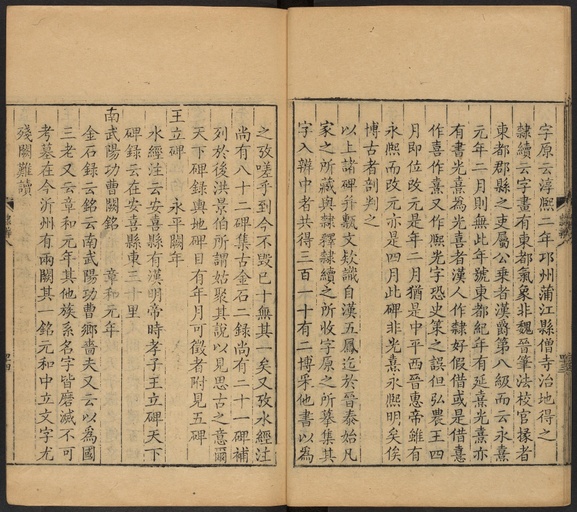 字原云淳熙二年邛州蒲江縣僧寺治地得之
隸續云字畫有東都氣象非魏晉筆法校官掾者
東都郡縣之吏屬公乘者漢爵第八級而云永熹
元年二月則無此年號東都紀年有延熹光熹亦
有書光熹為光喜者漢人作隸好假借或是借憙
作喜作熹又作熈光字恐史策之誤但弘農王四
月即位改元是年二月猶是中平西晉惠帝雖有
永熈而改元亦是四月此碑非光熹永熈明矣俟
博古者剖判之
以上諸碑并甎文欵識自漢五鳳迄於晉泰始凡
家之所藏與隸釋隸續之所收字原之所摹集其
字入辨中者共得三百一十有二博采他書以為
之攷嗟乎到今不毀已十無其一矣又攷水經注
尚有八十二碑集古金石二錄尚有二十一碑補
列於後洪景伯所謂姑聚其說以見思古之意爾
天下碑錄輿地碑目有年月可徵者附見五碑
王立碑 永平闕年
水經注云在安喜縣有漢明帝時孝子王立碑天下
碑錄云在安喜縣東三十里
南武陽功曹闕銘 章和元年
金石錄云銘云南武陽功曹鄉嗇夫又云以為國
三老又云章和元年其他族系名字皆磨滅不可
考墓在今沂州有兩闕其一銘元和中立文字尤
殘闕難讀